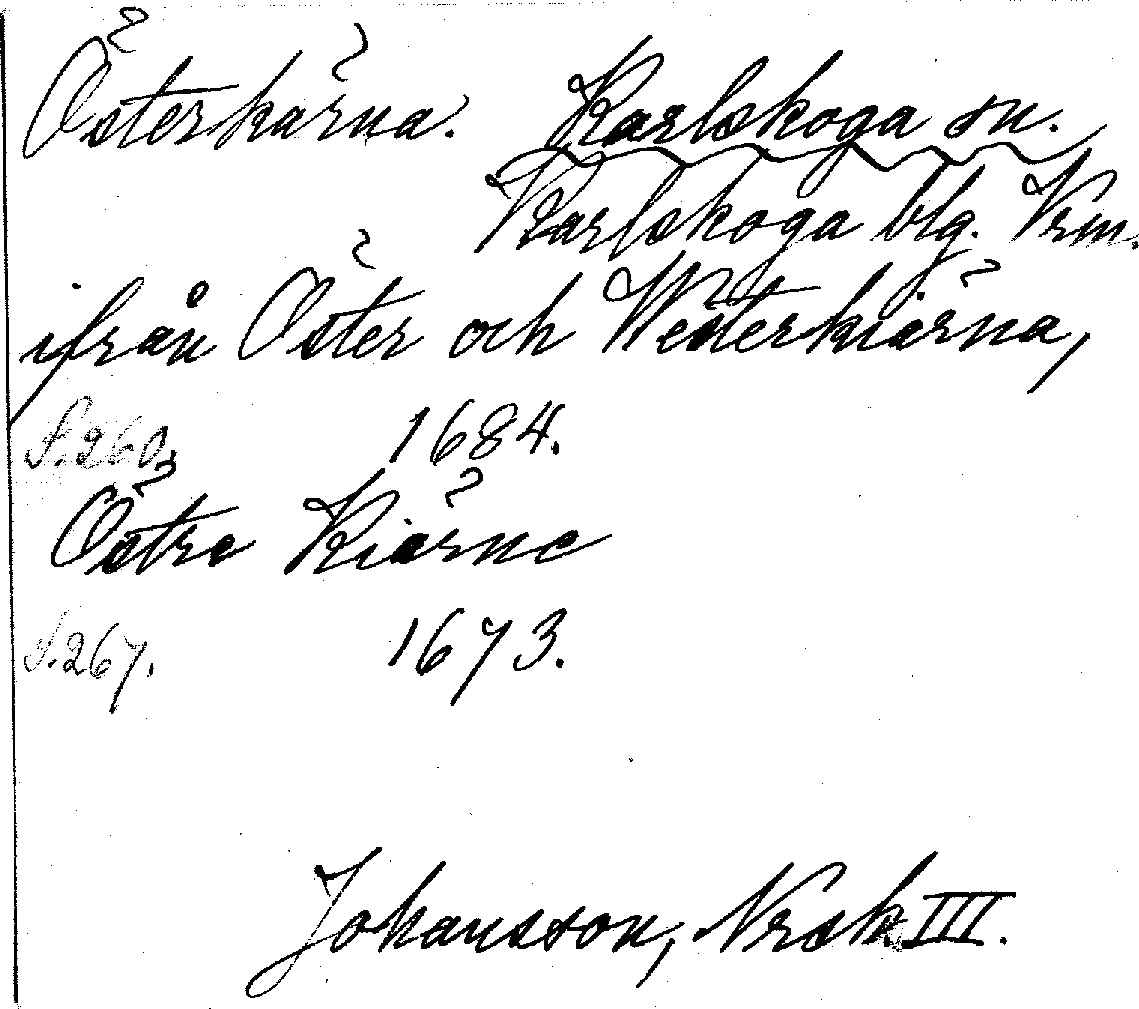 Österkärna. Karlskoga sn.
Karlskoga blg. Vrm.
ifrån Öster och Westerkiärna,
S. 260. 1684.
Östre Kiärne
S. 267. 1673.
Johansson, Nrsk III.